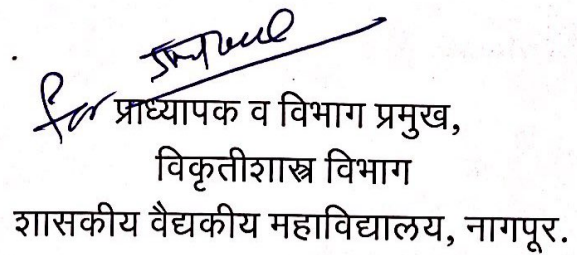 for प्राध्यापक व विभाग प्रमुख,
विकृतीशास्त्र विभाग
शासकीय वैद्यकीय महाविद्यालय, नागपूर.